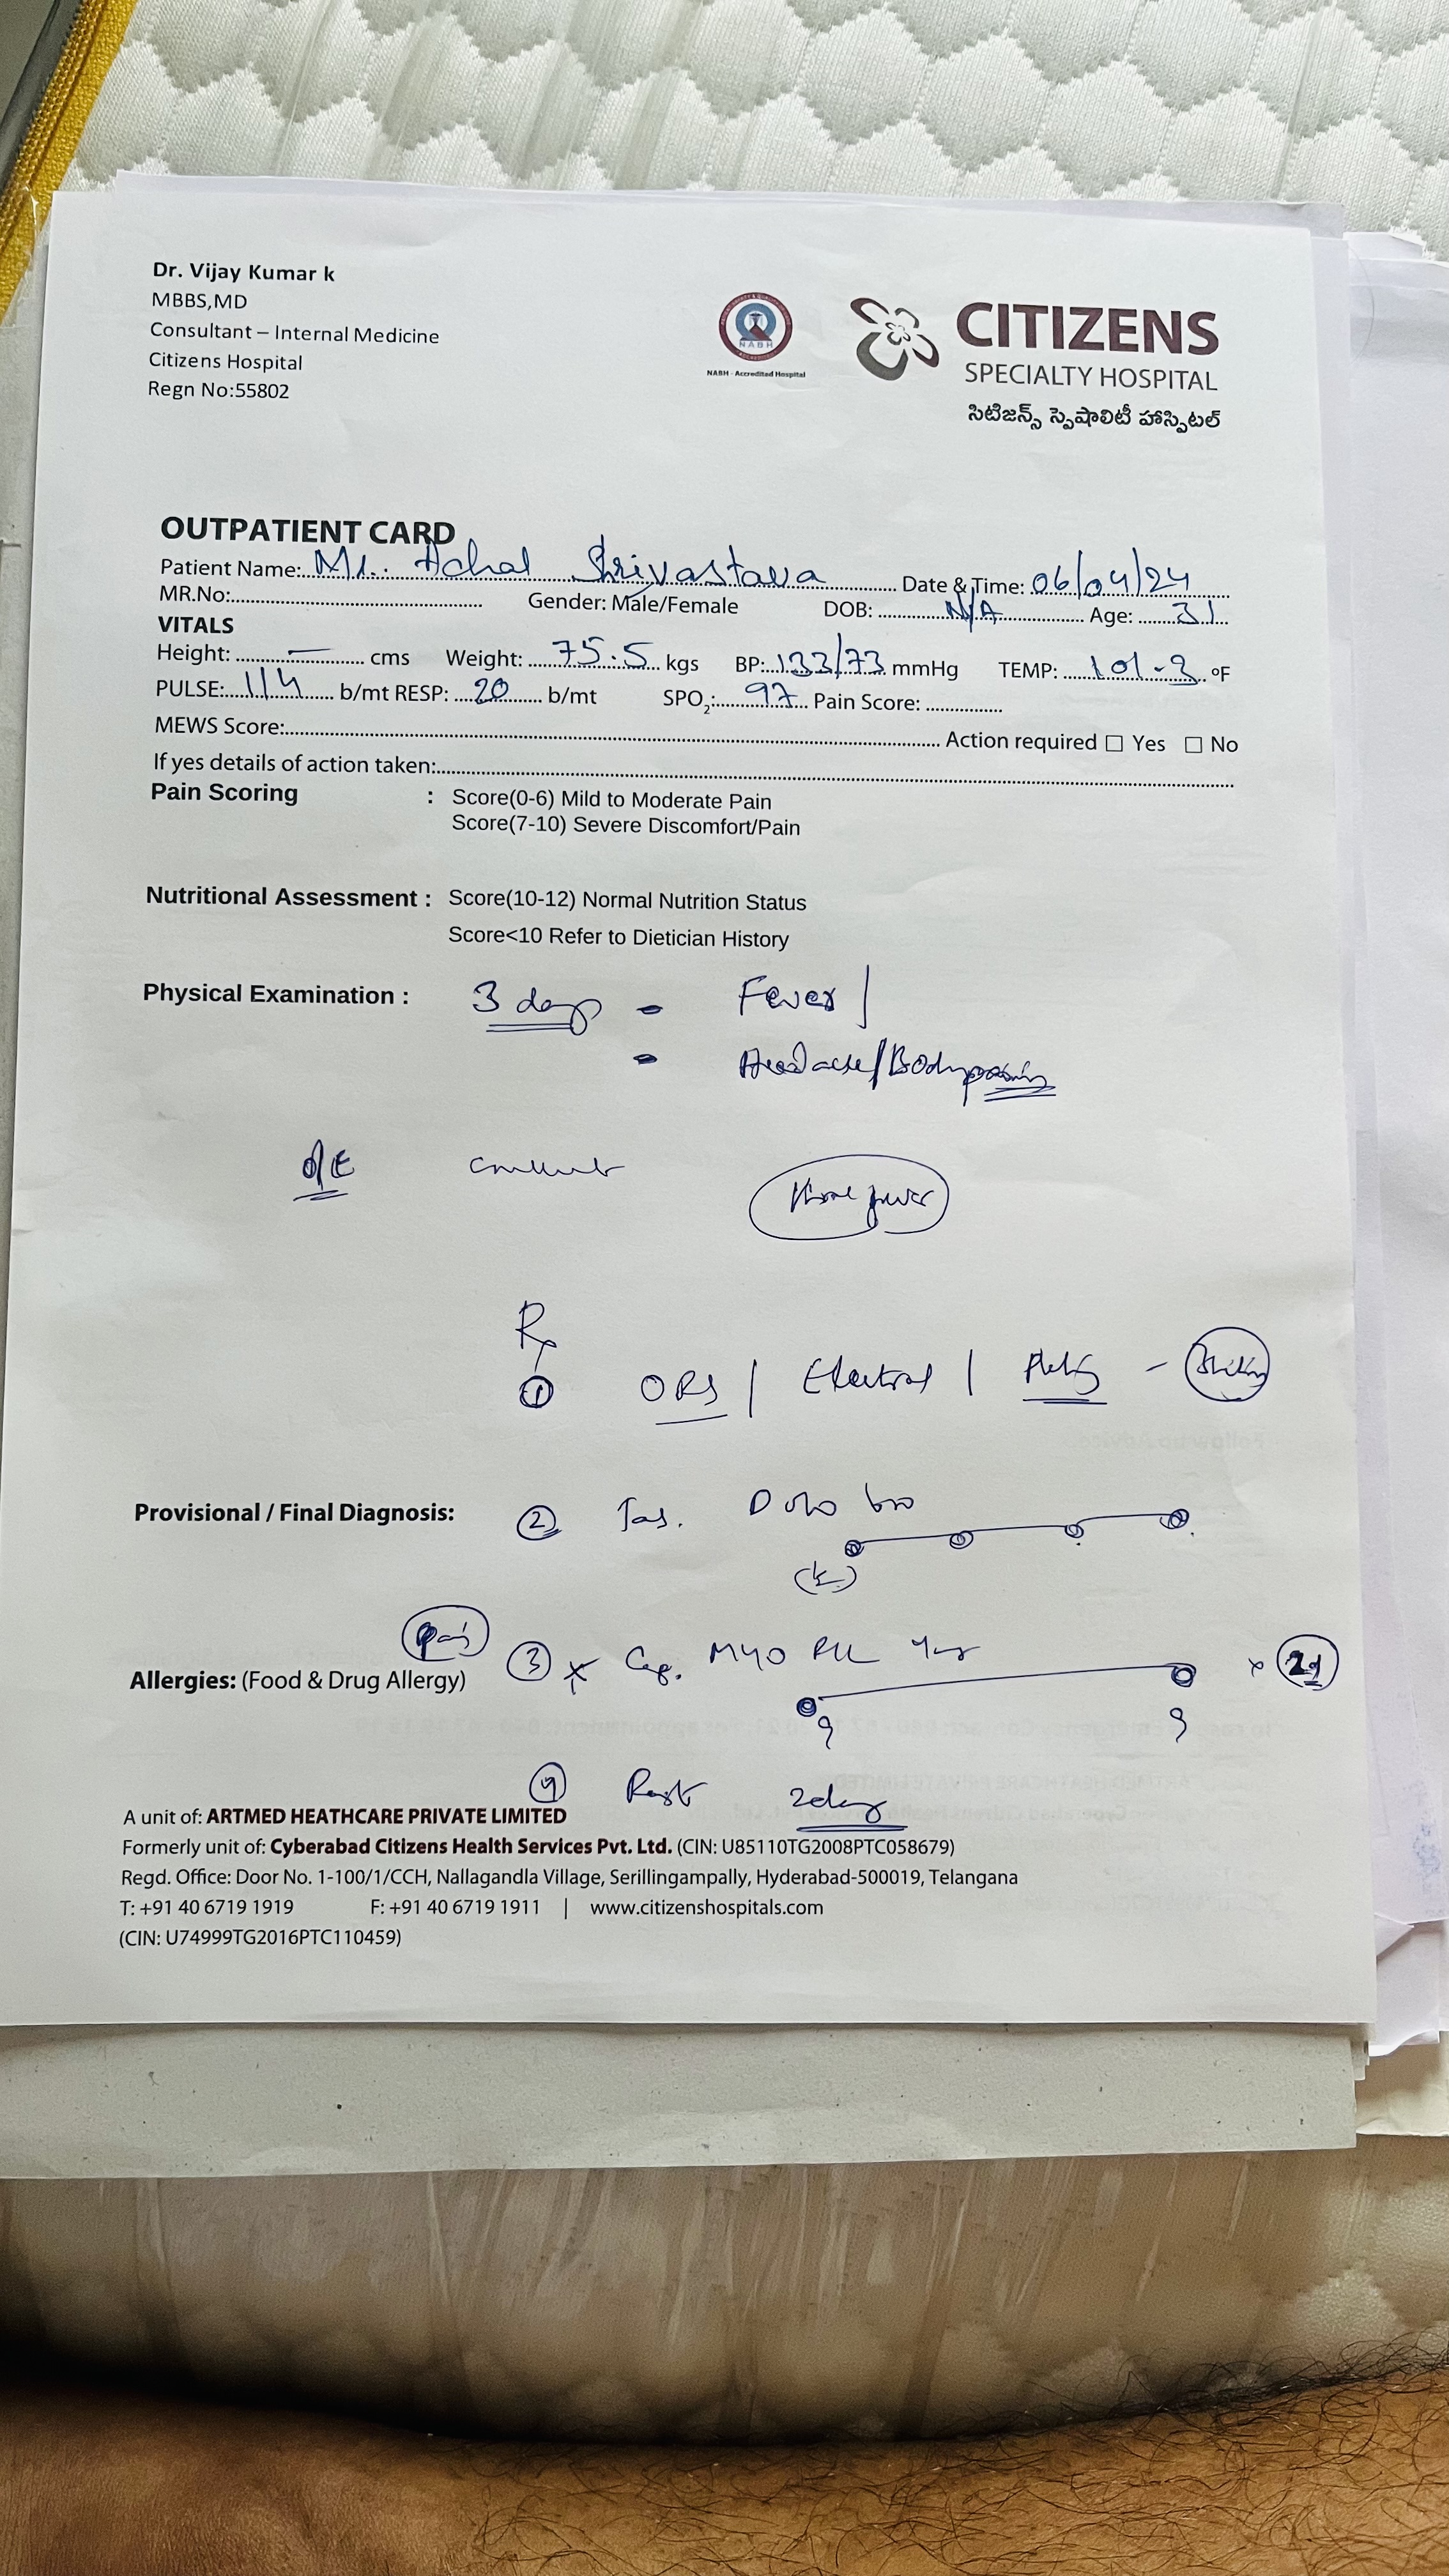 Dr. Vijay Kumar k
MBBS,MD
Consultant – Internal Medicine
Citizens Hospital
Regn No:55802
NABH
NABH - Accredited Hospital
CITIZENS
SPECIALTY HOSPITAL
సిటిజన్స్ స్పెషాలిటీ హాస్పిటల్
OUTPATIENT CARD
Patient Name: Mr. Achal Shrivastava Date & Time: 06/04/24
MR.No: Gender: Male/Female DOB: N/A Age: 31
VITALS
Height: — cms Weight: 75.5 kgs BP: 133/73 mmHg TEMP: 101.3 °F
PULSE: 114 b/mt RESP: 20 b/mt SPO2: 97 Pain Score:
MEWS Score: Action required □ Yes □ No
If yes details of action taken:
Pain Scoring : Score(0-6) Mild to Moderate Pain
Score(7-10) Severe Discomfort/Pain
Nutritional Assessment : Score(10-12) Normal Nutrition Status
Score<10 Refer to Dietician History
Physical Examination : 3 days - Fever |
- Headache/Bodypains
O/E
Rx
① ORS | Electral |
Provisional / Final Diagnosis: ② Tab. Dolo 650
③ Cap. MYO
Allergies: (Food & Drug Allergy)
9 9
④ Rest 2days
A unit of: ARTMED HEATHCARE PRIVATE LIMITED
Formerly unit of: Cyberabad Citizens Health Services Pvt. Ltd. (CIN: U85110TG2008PTC058679)
Regd. Office: Door No. 1-100/1/CCH, Nallagandla Village, Serillingampally, Hyderabad-500019, Telangana
T: +91 40 6719 1919 F: +91 40 6719 1911 | www.citizenshospitals.com
(CIN: U74999TG2016PTC110459)